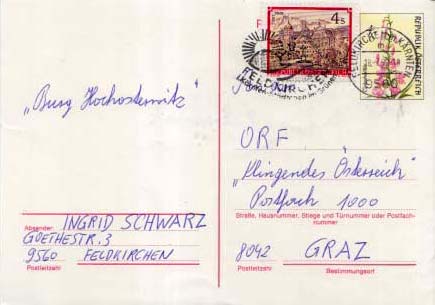 4 S
REPUBLIK ÖSTERREICH
9560
FELDKIRCHEN
"Burg Hochosterwitz"
ORF
"Klingendes Österreich"
Postfach 1000
Straße, Hausnummer, Stiege und Türnummer oder Postfach-
nummer
8042 GRAZ
Postleitzahl Bestimmungsort
Absender: INGRID SCHWARZ
GOETHESTR. 3
9560 FELDKIRCHEN
Postleitzahl